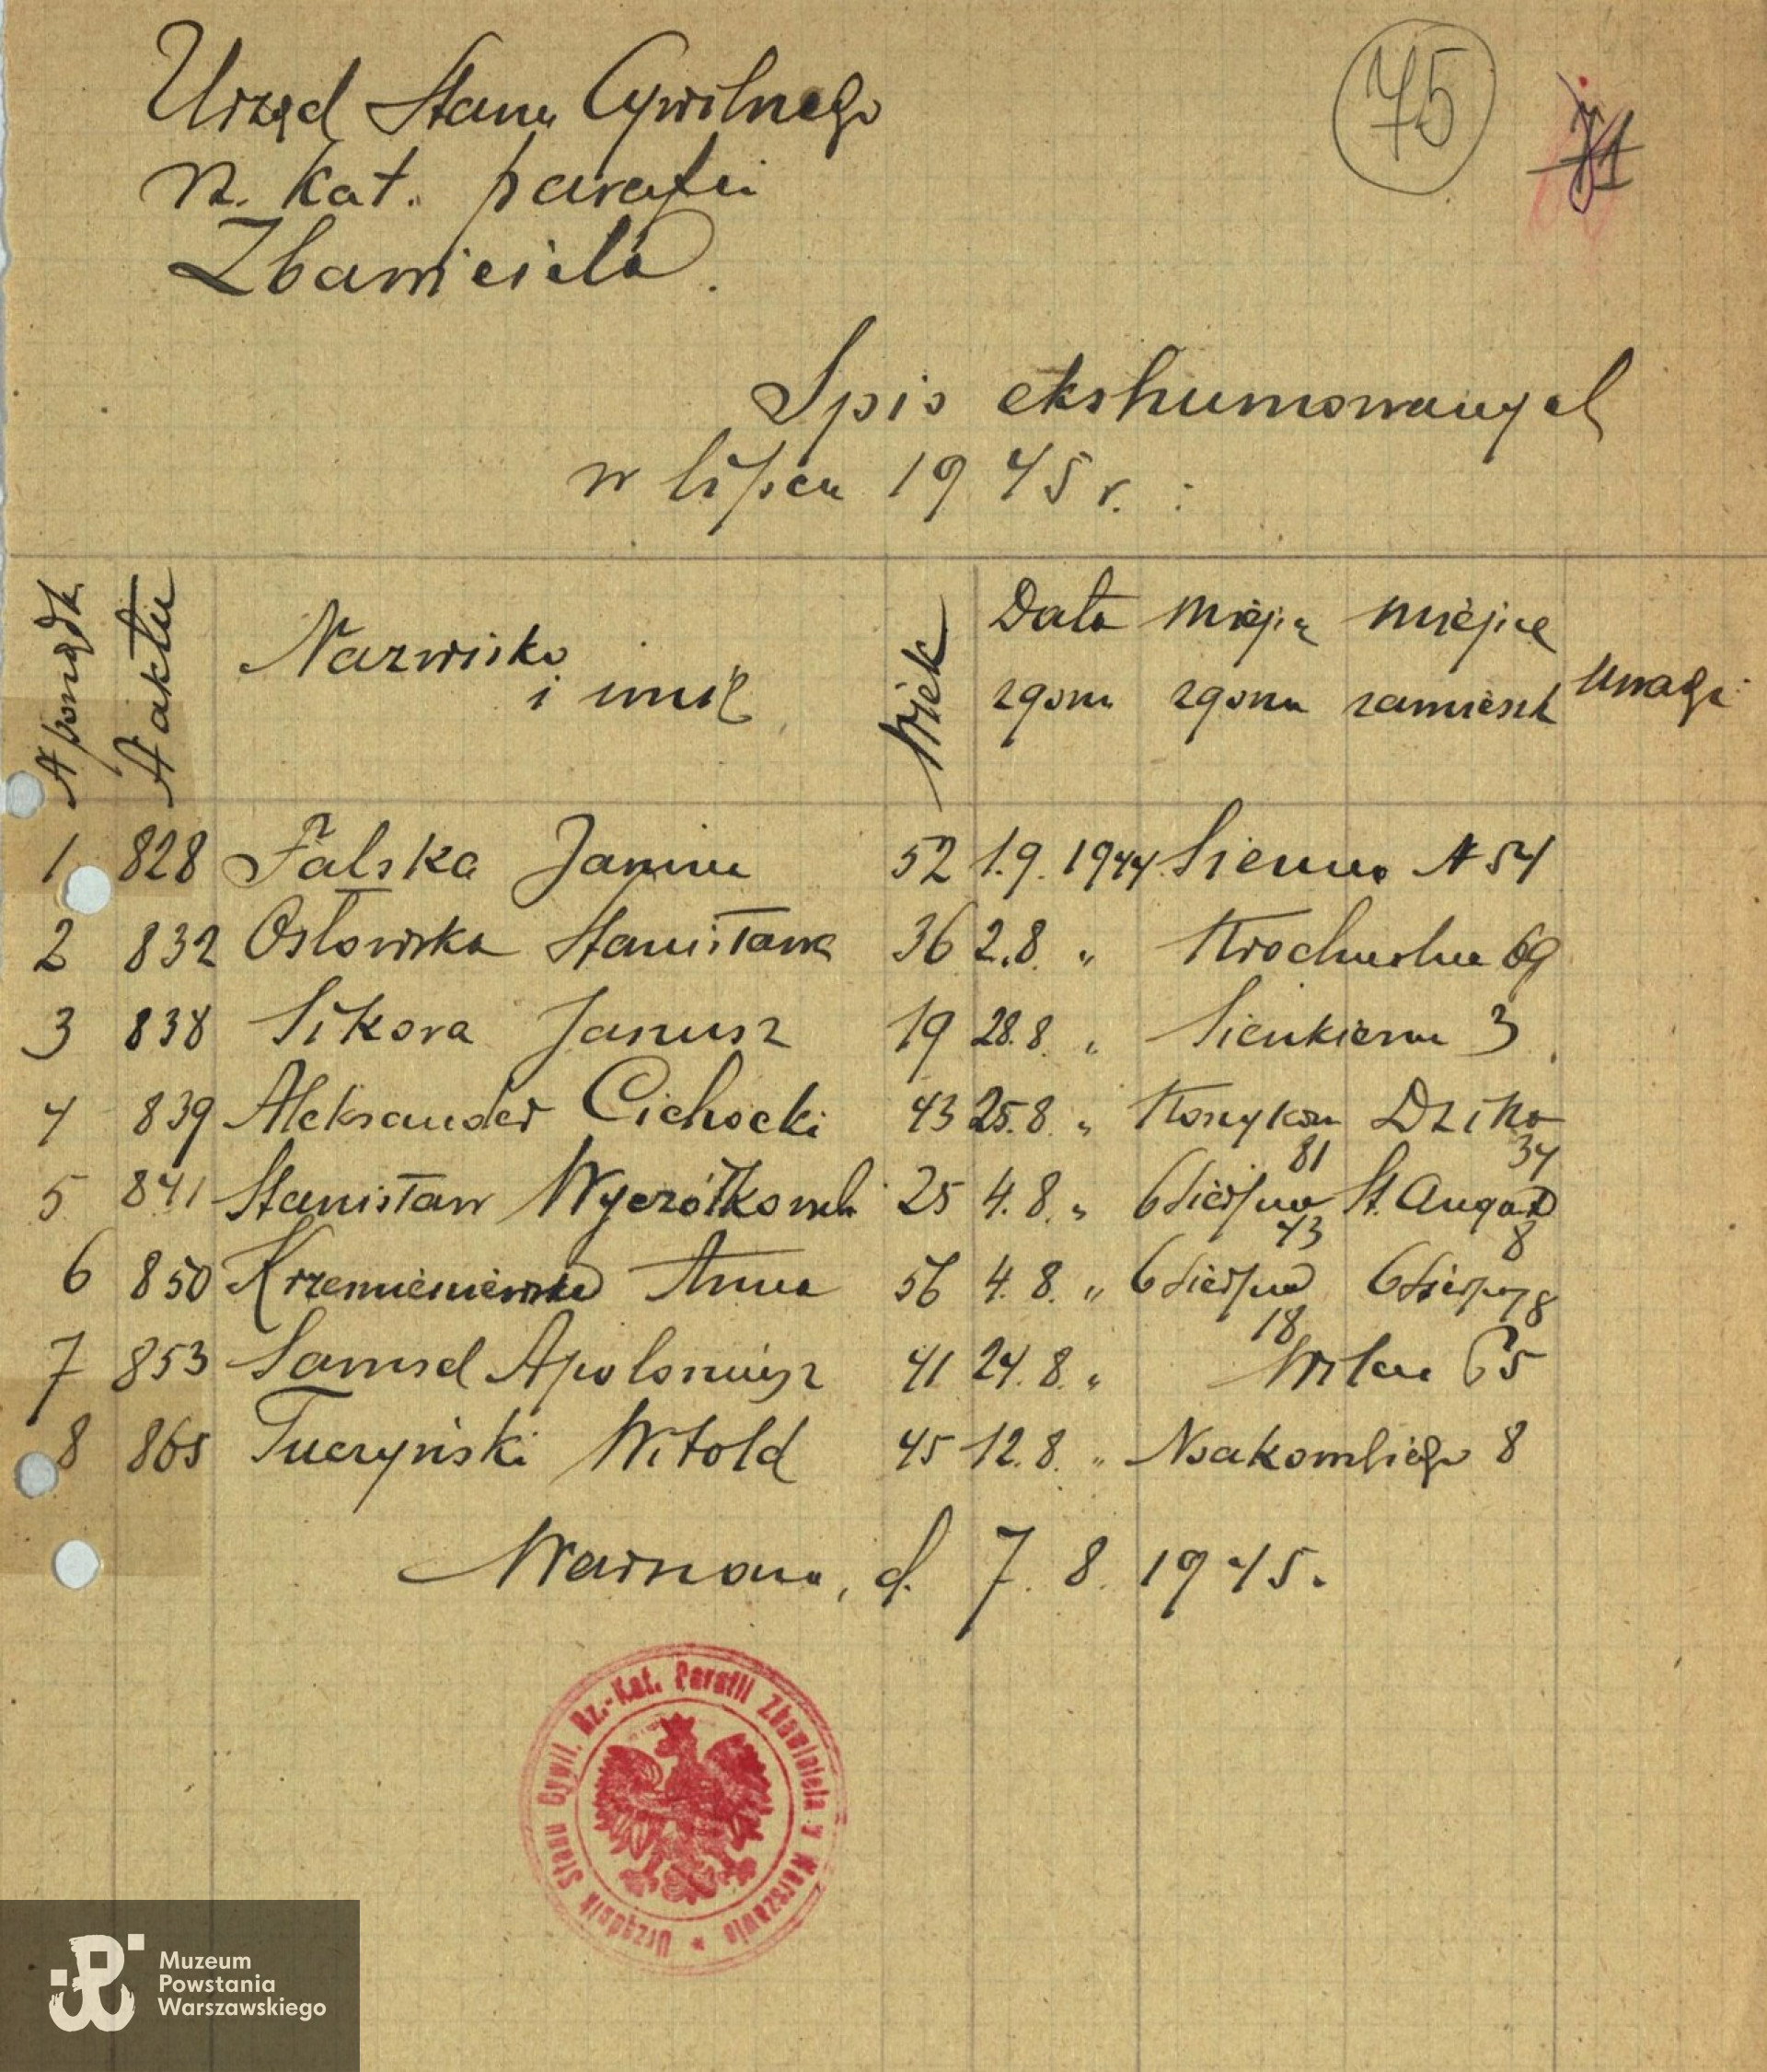 75
71
Urząd Stanu Cywilnego
rz. kat. parafii
Zbawiciela.
Spis ekshumowanych
w lipcu 1945 r. :
N porządk N aktu Nazwisko i imię Wiek Data zgonu Miejsce zgonu miejsce zamieszk Uwagi
1 828 Falska Janina 52 1.9. 1944 Sienna N 54
2 832 Osłowska Stanisława 36 2.8. " Krochmalna 69
3 838 Sikora Janusz 19 28.8. " Sienkiewi 3
4 839 Aleksander Cichocki 43 25.8. " 81 Dzika 34
5 841 Stanisław Wyczółkowski 25 4.8. " 6 Sierpnia 43 St. August 8
6 850 Krzemieniewska Anna 56 4.8. " 6 Sierpnia 18 6 Sierpn 78
7 853 Samsel Apoloniusz 41 24.8. " Wilcza 65
8 865 Tuczyński Witold 45 12.8. " Noakowskiego 8
Warszawa, d. 7. 8. 1945.
Urzędnik Stanu Cywil. Rz.-Kat. Parafii Zbawiciela w Warszawie *
Muzeum
Powstania
Warszawskiego